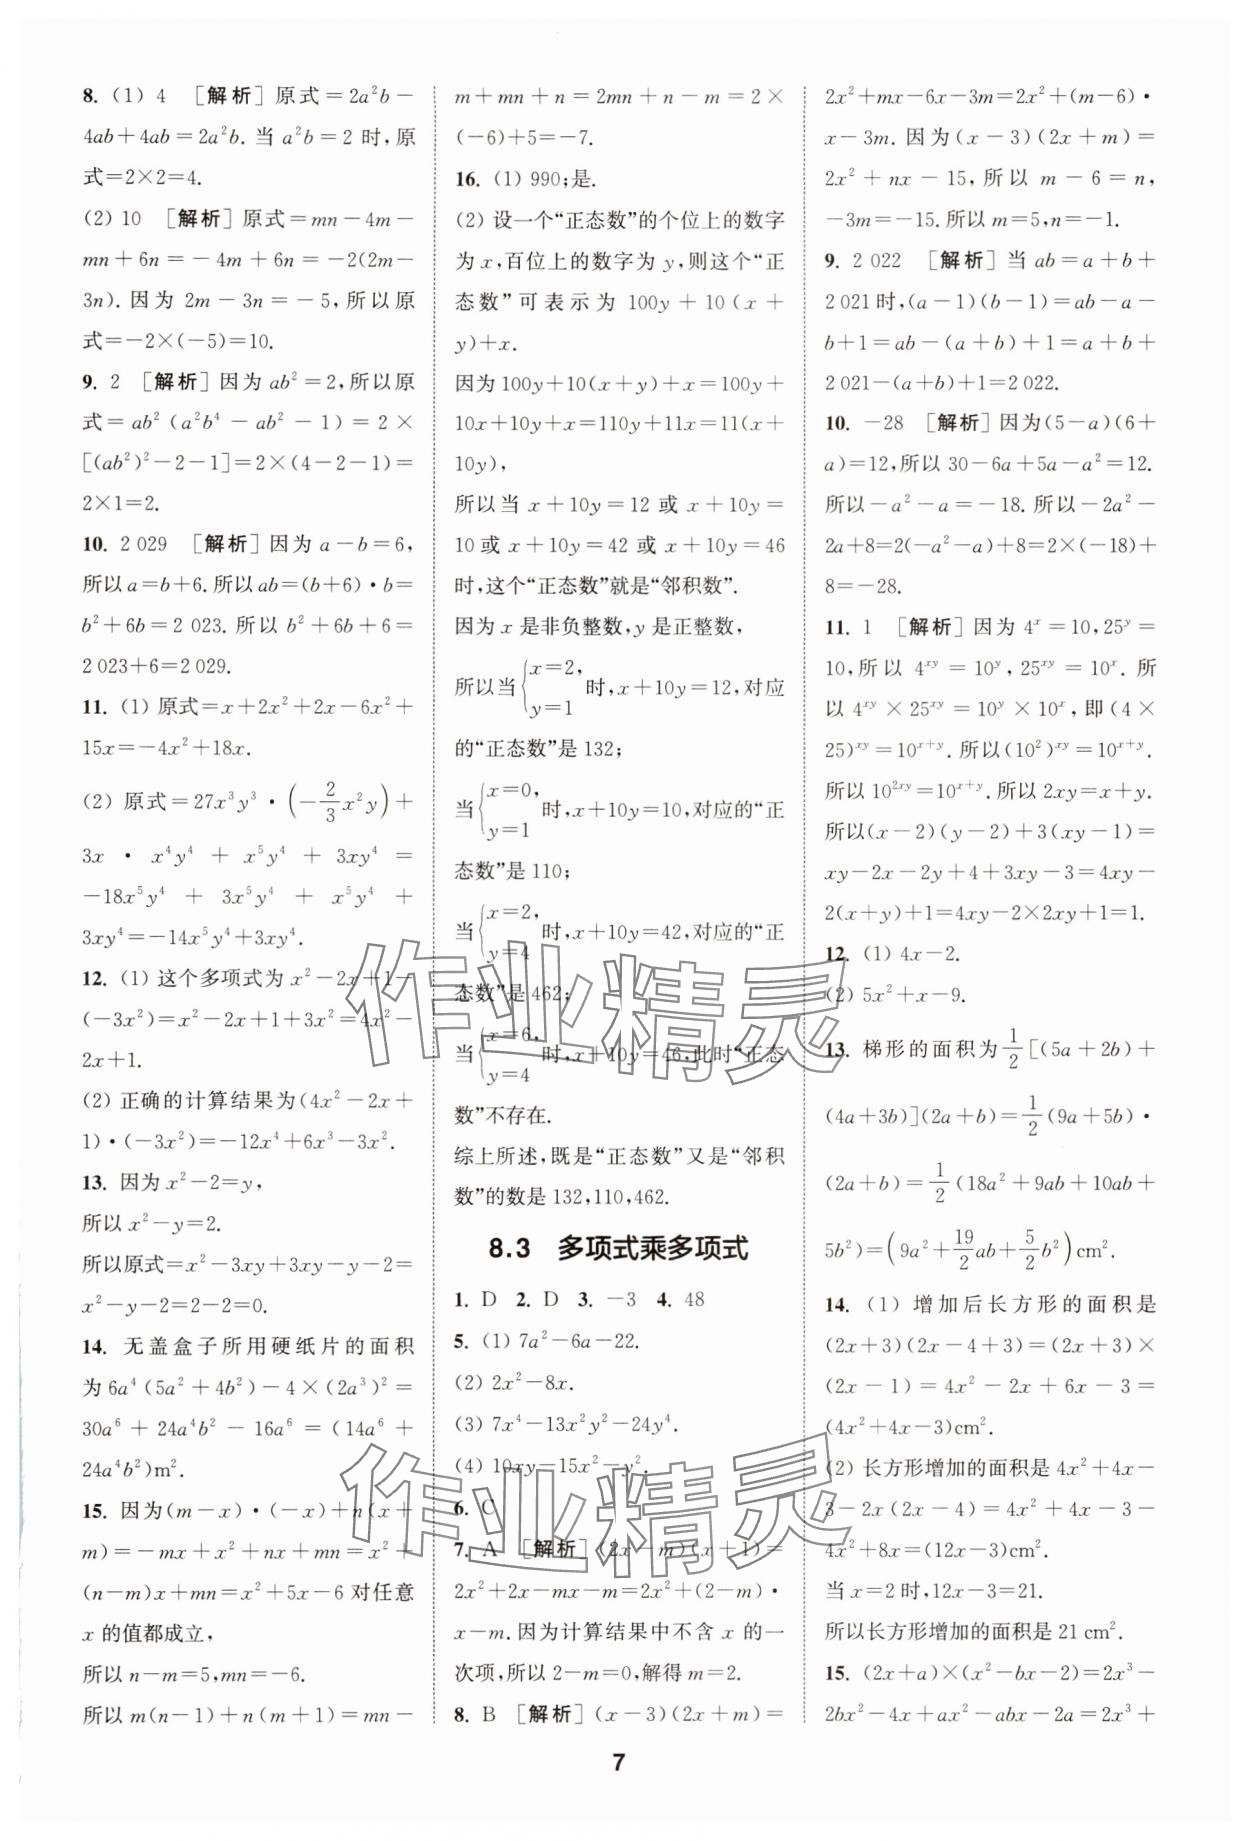 8. (1) 4 [解析]原式=2a²b-
4ab+4ab=2a²b. 当 a²b=2 时,原
式=2×2=4.
(2) 10 [解析]原式=mn-4m-
mn+6n=-4m+6n=-2(2m-
3n). 因为 2m-3n=-5,所以原
式=-2×(-5)=10.
9. 2 [解析]因为 ab²=2,所以原
式=ab²(a²b⁴-ab²-1)=2×
[(ab²)²-2-1]=2×(4-2-1)=
2×1=2.
10. 2 029 [解析]因为 a-b=6,
所以 a=b+6. 所以 ab=(b+6)·b=
b²+6b=2 023. 所以 b²+6b+6=
2 023+6=2 029.
11. (1) 原式=x+2x²+2x-6x²+
15x=-4x²+18x.
(2) 原式=27x³y³·(-2/3x²y)+
3x·x⁴y⁴+x⁵y⁴+3xy⁴=
-18x⁵y⁴+3x⁵y⁴+x⁵y⁴+
3xy⁴=-14x⁵y⁴+3xy⁴.
12. (1) 这个多项式为 x²-2x+1-
(-3x²)=x²-2x+1+3x²=4x²-
2x+1.
(2) 正确的计算结果为(4x²-2x+
1)·(-3x²)=-12x⁴+6x³-3x².
13. 因为 x²-2=y,
所以 x²-y=2.
所以原式=x²-3xy+3xy-y-2=
x²-y-2=2-2=0.
14. 无盖盒子所用硬纸片的面积
为 6a⁴(5a²+4b²)-4×(2a³)²=
30a⁶+24a⁴b²-16a⁶=(14a⁶+
24a⁴b²)m².
15. 因为(m-x)·(-x)+n(x+
m)=-mx+x²+nx+mn=x²+
(n-m)x+mn=x²+5x-6 对任意
x 的值都成立,
所以 n-m=5,mn=-6.
所以 m(n-1)+n(m+1)=mn-
m+mn+n=2mn+n-m=2×
(-6)+5=-7.
16. (1) 990;是.
(2) 设一个“正态数”的个位上的数字
为 x,百位上的数字为 y,则这个“正
态数”可表示为 100y+10(x+
y)+x.
因为 100y+10(x+y)+x=100y+
10x+10y+x=110y+11x=11(x+
10y),
所以当 x+10y=12 或 x+10y=
10 或 x+10y=42 或 x+10y=46
时,这个“正态数”就是“邻积数”.
因为 x 是非负整数,y 是正整数,
所以当{x=2, y=1 时,x+10y=12,对应
的“正态数”是 132;
当{x=0, y=1 时,x+10y=10,对应的“正
态数”是 110;
当{x=2, y=4 时,x+10y=42,对应的“正
态数”是 462;
当{x=6, y=4 时,x+10y=46,此时“正态
数”不存在.
综上所述,既是“正态数”又是“邻积
数”的数是 132,110,462.
8.3 多项式乘多项式
1. D 2. D 3. -3 4. 48
5. (1) 7a²-6a-22.
(2) 2x²-8x.
(3) 7x⁴-13x²y²-24y⁴.
(4) 10xy-15x²-y².
6. C
7. A [解析](2x-m)(x+1)=
2x²+2x-mx-m=2x²+(2-m)·
x-m. 因为计算结果中不含 x 的一
次项,所以 2-m=0,解得 m=2.
8. B [解析](x-3)(2x+m)=
2x²+mx-6x-3m=2x²+(m-6)·
x-3m. 因为(x-3)(2x+m)=
2x²+nx-15,所以 m-6=n,
-3m=-15. 所以 m=5,n=-1.
9. 2 022 [解析]当 ab=a+b+
2 021 时,(a-1)(b-1)=ab-a-
b+1=ab-(a+b)+1=a+b+
2 021-(a+b)+1=2 022.
10. -28 [解析]因为(5-a)(6+
a)=12,所以 30-6a+5a-a²=12.
所以-a²-a=-18. 所以-2a²-
2a+8=2(-a²-a)+8=2×(-18)+
8=-28.
11. 1 [解析]因为 4ˣ=10,25ʸ=
10,所以 4ˣʸ=10ʸ,25ˣʸ=10ˣ. 所
以 4ˣʸ×25ˣʸ=10ʸ×10ˣ,即(4×
25)ˣʸ=10ˣ⁺ʸ. 所以(10²)ˣʸ=10ˣ⁺ʸ.
所以 10²ˣʸ=10ˣ⁺ʸ. 所以 2xy=x+y.
所以(x-2)(y-2)+3(xy-1)=
xy-2x-2y+4+3xy-3=4xy-
2(x+y)+1=4xy-2×2xy+1=1.
12. (1) 4x-2.
(2) 5x²+x-9.
13. 梯形的面积为1/2[(5a+2b)+
(4a+3b)](2a+b)=1/2(9a+5b)·
(2a+b)=1/2(18a²+9ab+10ab+
5b²)=(9a²+19/2ab+5/2b²)cm².
14. (1) 增加后长方形的面积是
(2x+3)(2x-4+3)=(2x+3)×
(2x-1)=4x²-2x+6x-3=
(4x²+4x-3)cm².
(2) 长方形增加的面积是 4x²+4x-
3-2x(2x-4)=4x²+4x-3-
4x²+8x=(12x-3)cm².
当 x=2 时,12x-3=21.
所以长方形增加的面积是 21 cm².
15. (2x+a)×(x²-bx-2)=2x³-
2bx²-4x+ax²-abx-2a=2x³+
7
作业精灵
作业精灵